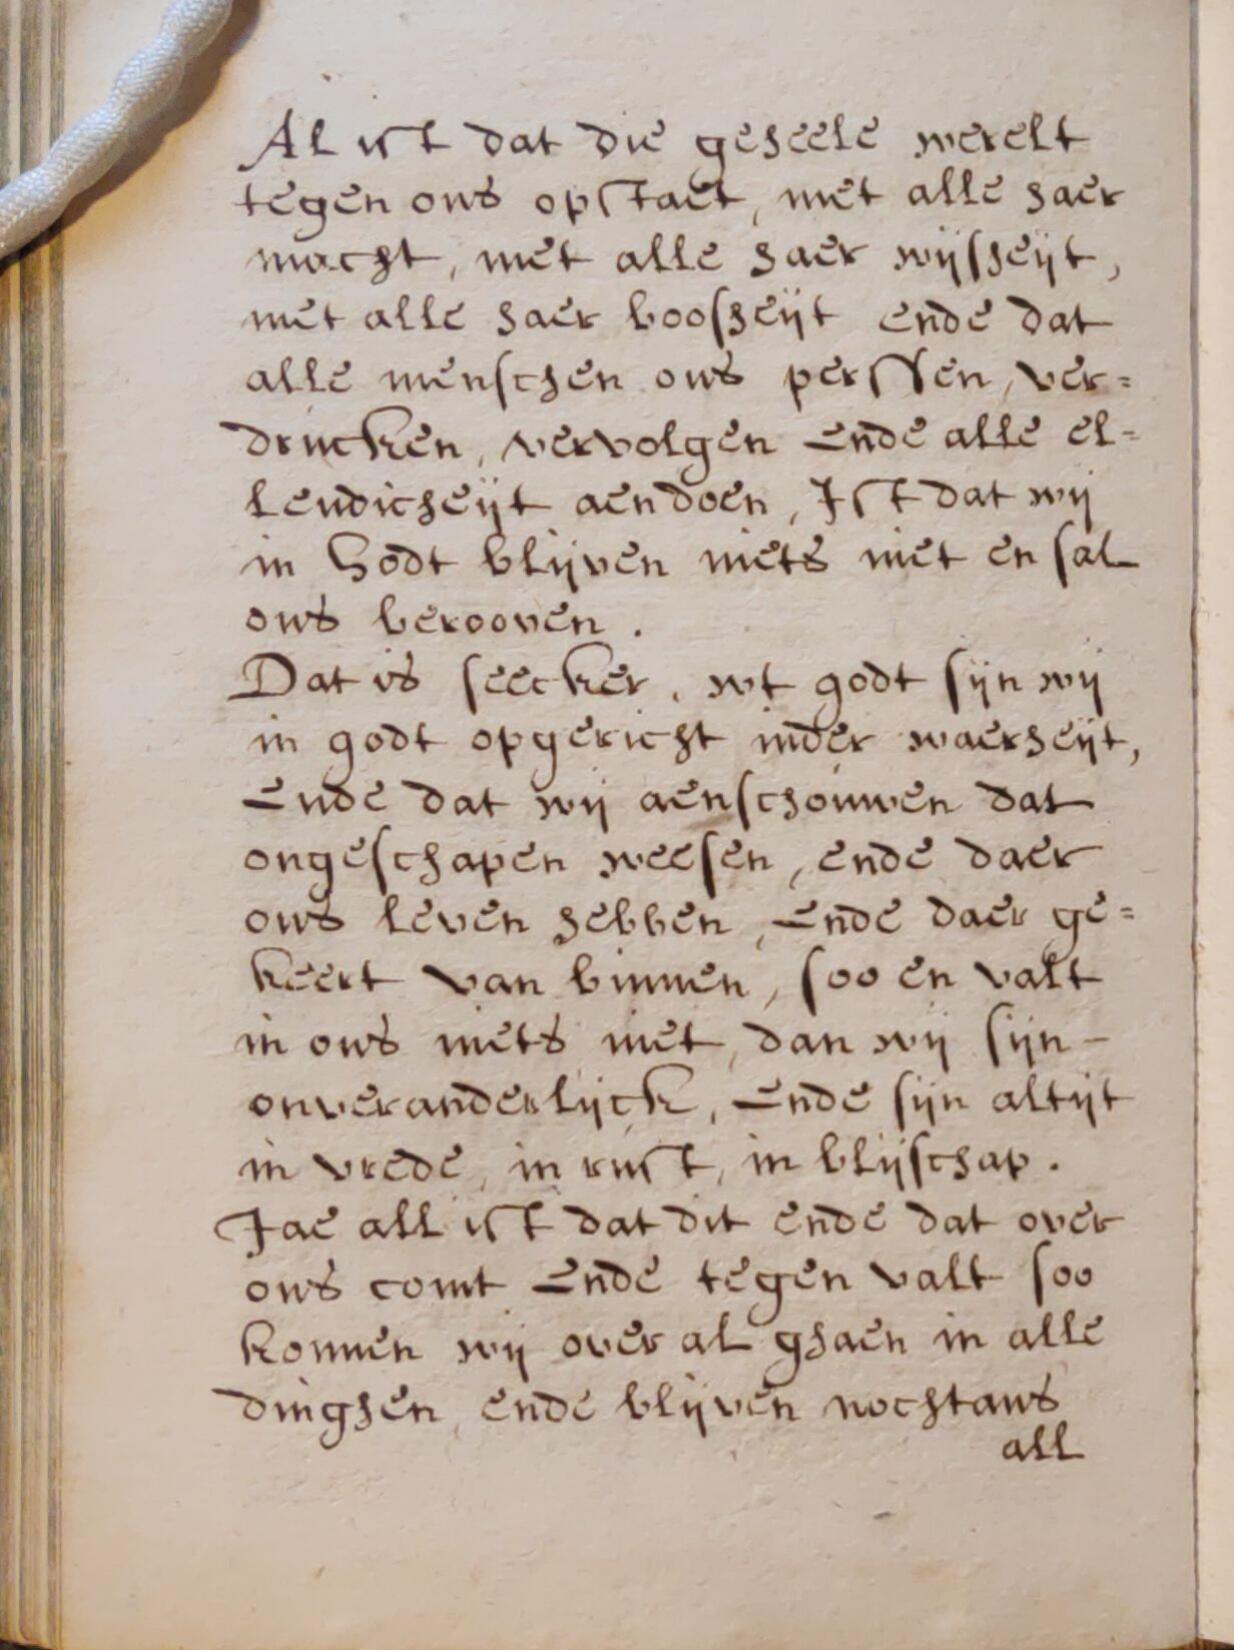 Al ist dat die geheele werelt
tegen ons opstaet, met alle haer
macht, met alle haer wijsheijt,
met alle haer boosheijt ende dat
alle menschen ons perssen, ver=
drucken, vervolgen Ende alle el=
lendicheijt aendoen, Ist dat wij
in Godt blijven niets niet en sal
ons berooven.
Dat is seecker, wt godt sijn wij
in godt opgericht inder waerheijt,
Ende dat wij aenschouwen dat
ongeschapen weesen, ende daer
ons leven hebben, Ende daer ge=
keert van binnen, soo en valt
in ons niets niet, dan wij sijn –
onveranderlijck, Ende sijn altijt
in vrede, in rust, in blijschap.
Jae all ist dat dit ende dat over
ons comt Ende tegen valt soo
konnen wij over al ghaen in alle
dinghen, ende blijven nochtans
all